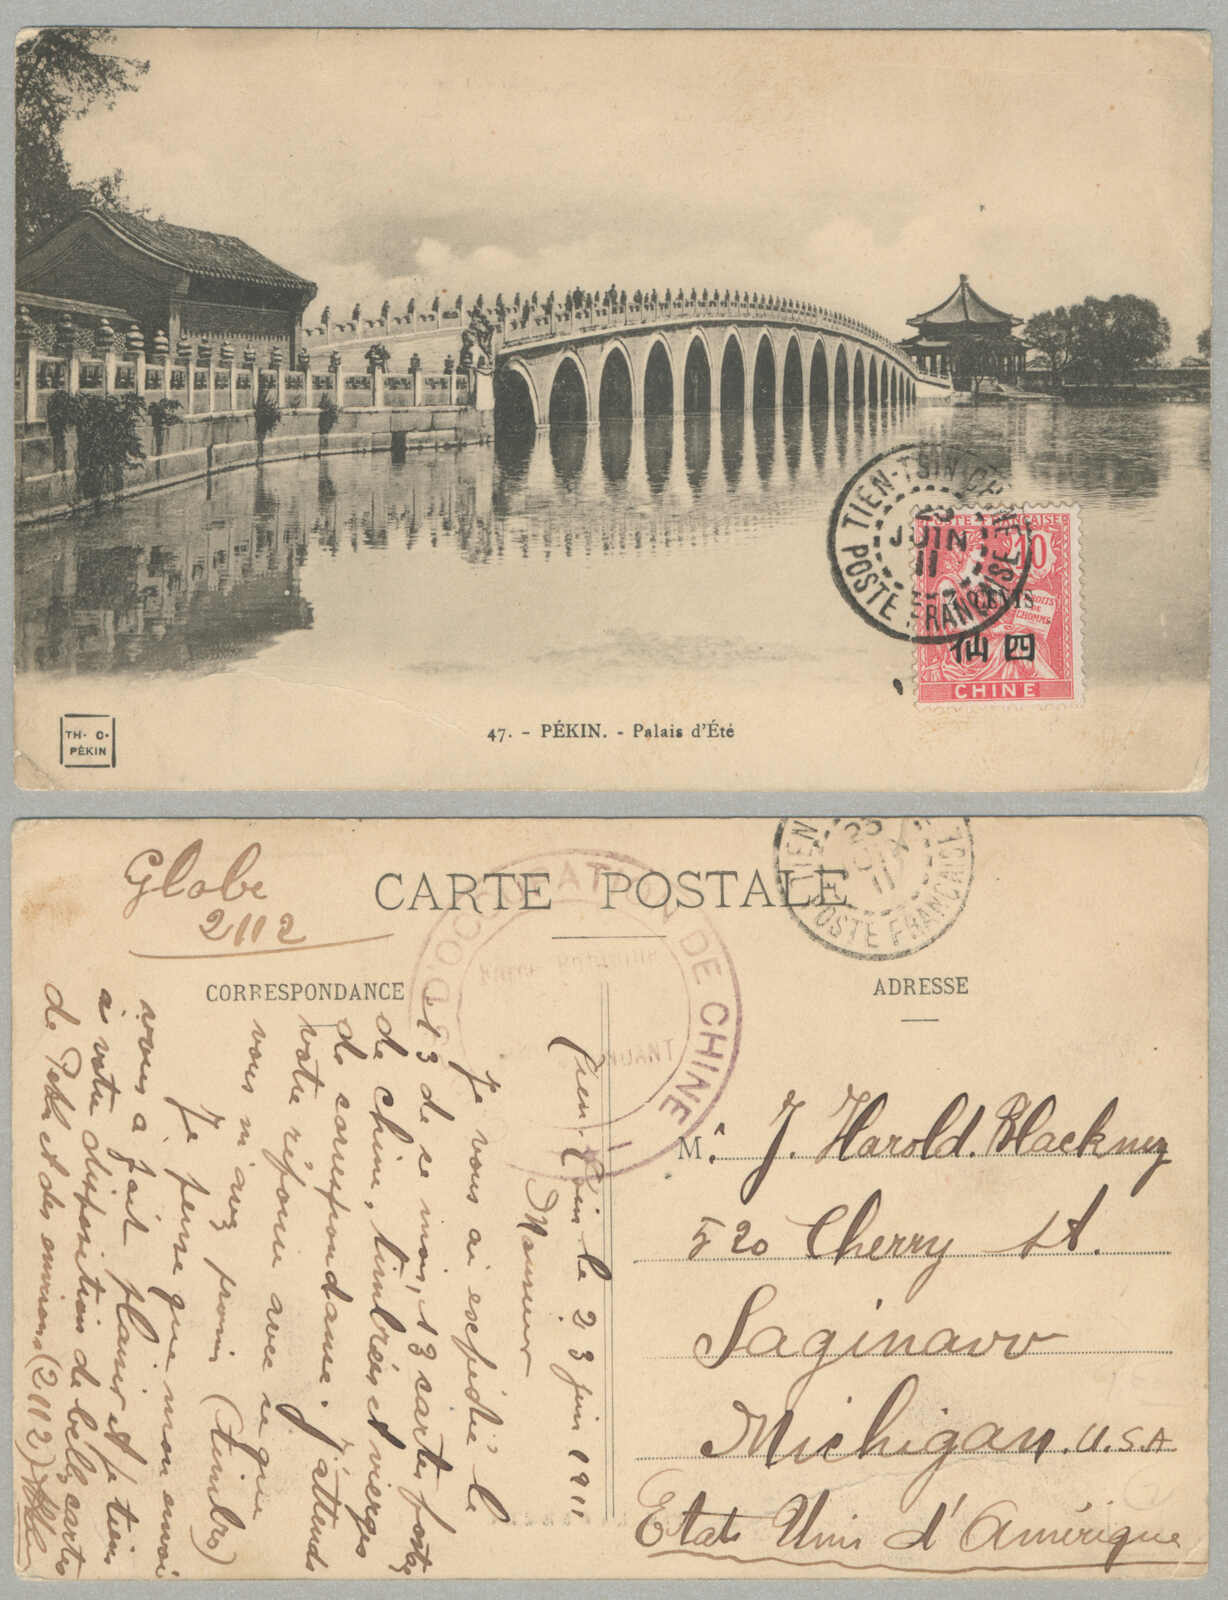 TIEN-TSIN CHINE
JUIN
11
POSTE FRANÇAISE
POSTE FRANÇAISE
10
CENTS
DROITS
DE
L'HOMME
仙四
CHINE
47. - PÉKIN. - Palais d'Été
TH. O.
PÉKIN
Globe
2112
CARTE POSTALE
CORRESPONDANCE
ADRESSE
TIEN
25
11
POSTE FRANÇAISE
D'OCCUPATION DE CHINE
Tien-Tsin le 23 juin 1911
Monsieur
Je vous ai expédié le
13 de ce mois, 13 cartes postes
de chine, timbrées et vierges
de correspondance. J'attends
votre réponse avec ce que
vous m'avez promis (timbre)
Je pense que mon envoi
vous a fait plaisir et je tiens
à votre disposition de belles cartes
de Pékin et des environs (2112)
M. J. Harold. Blackney
520 Cherry St.
Saginaw
Michigan. U.S.A
Etats Unis d'Amérique